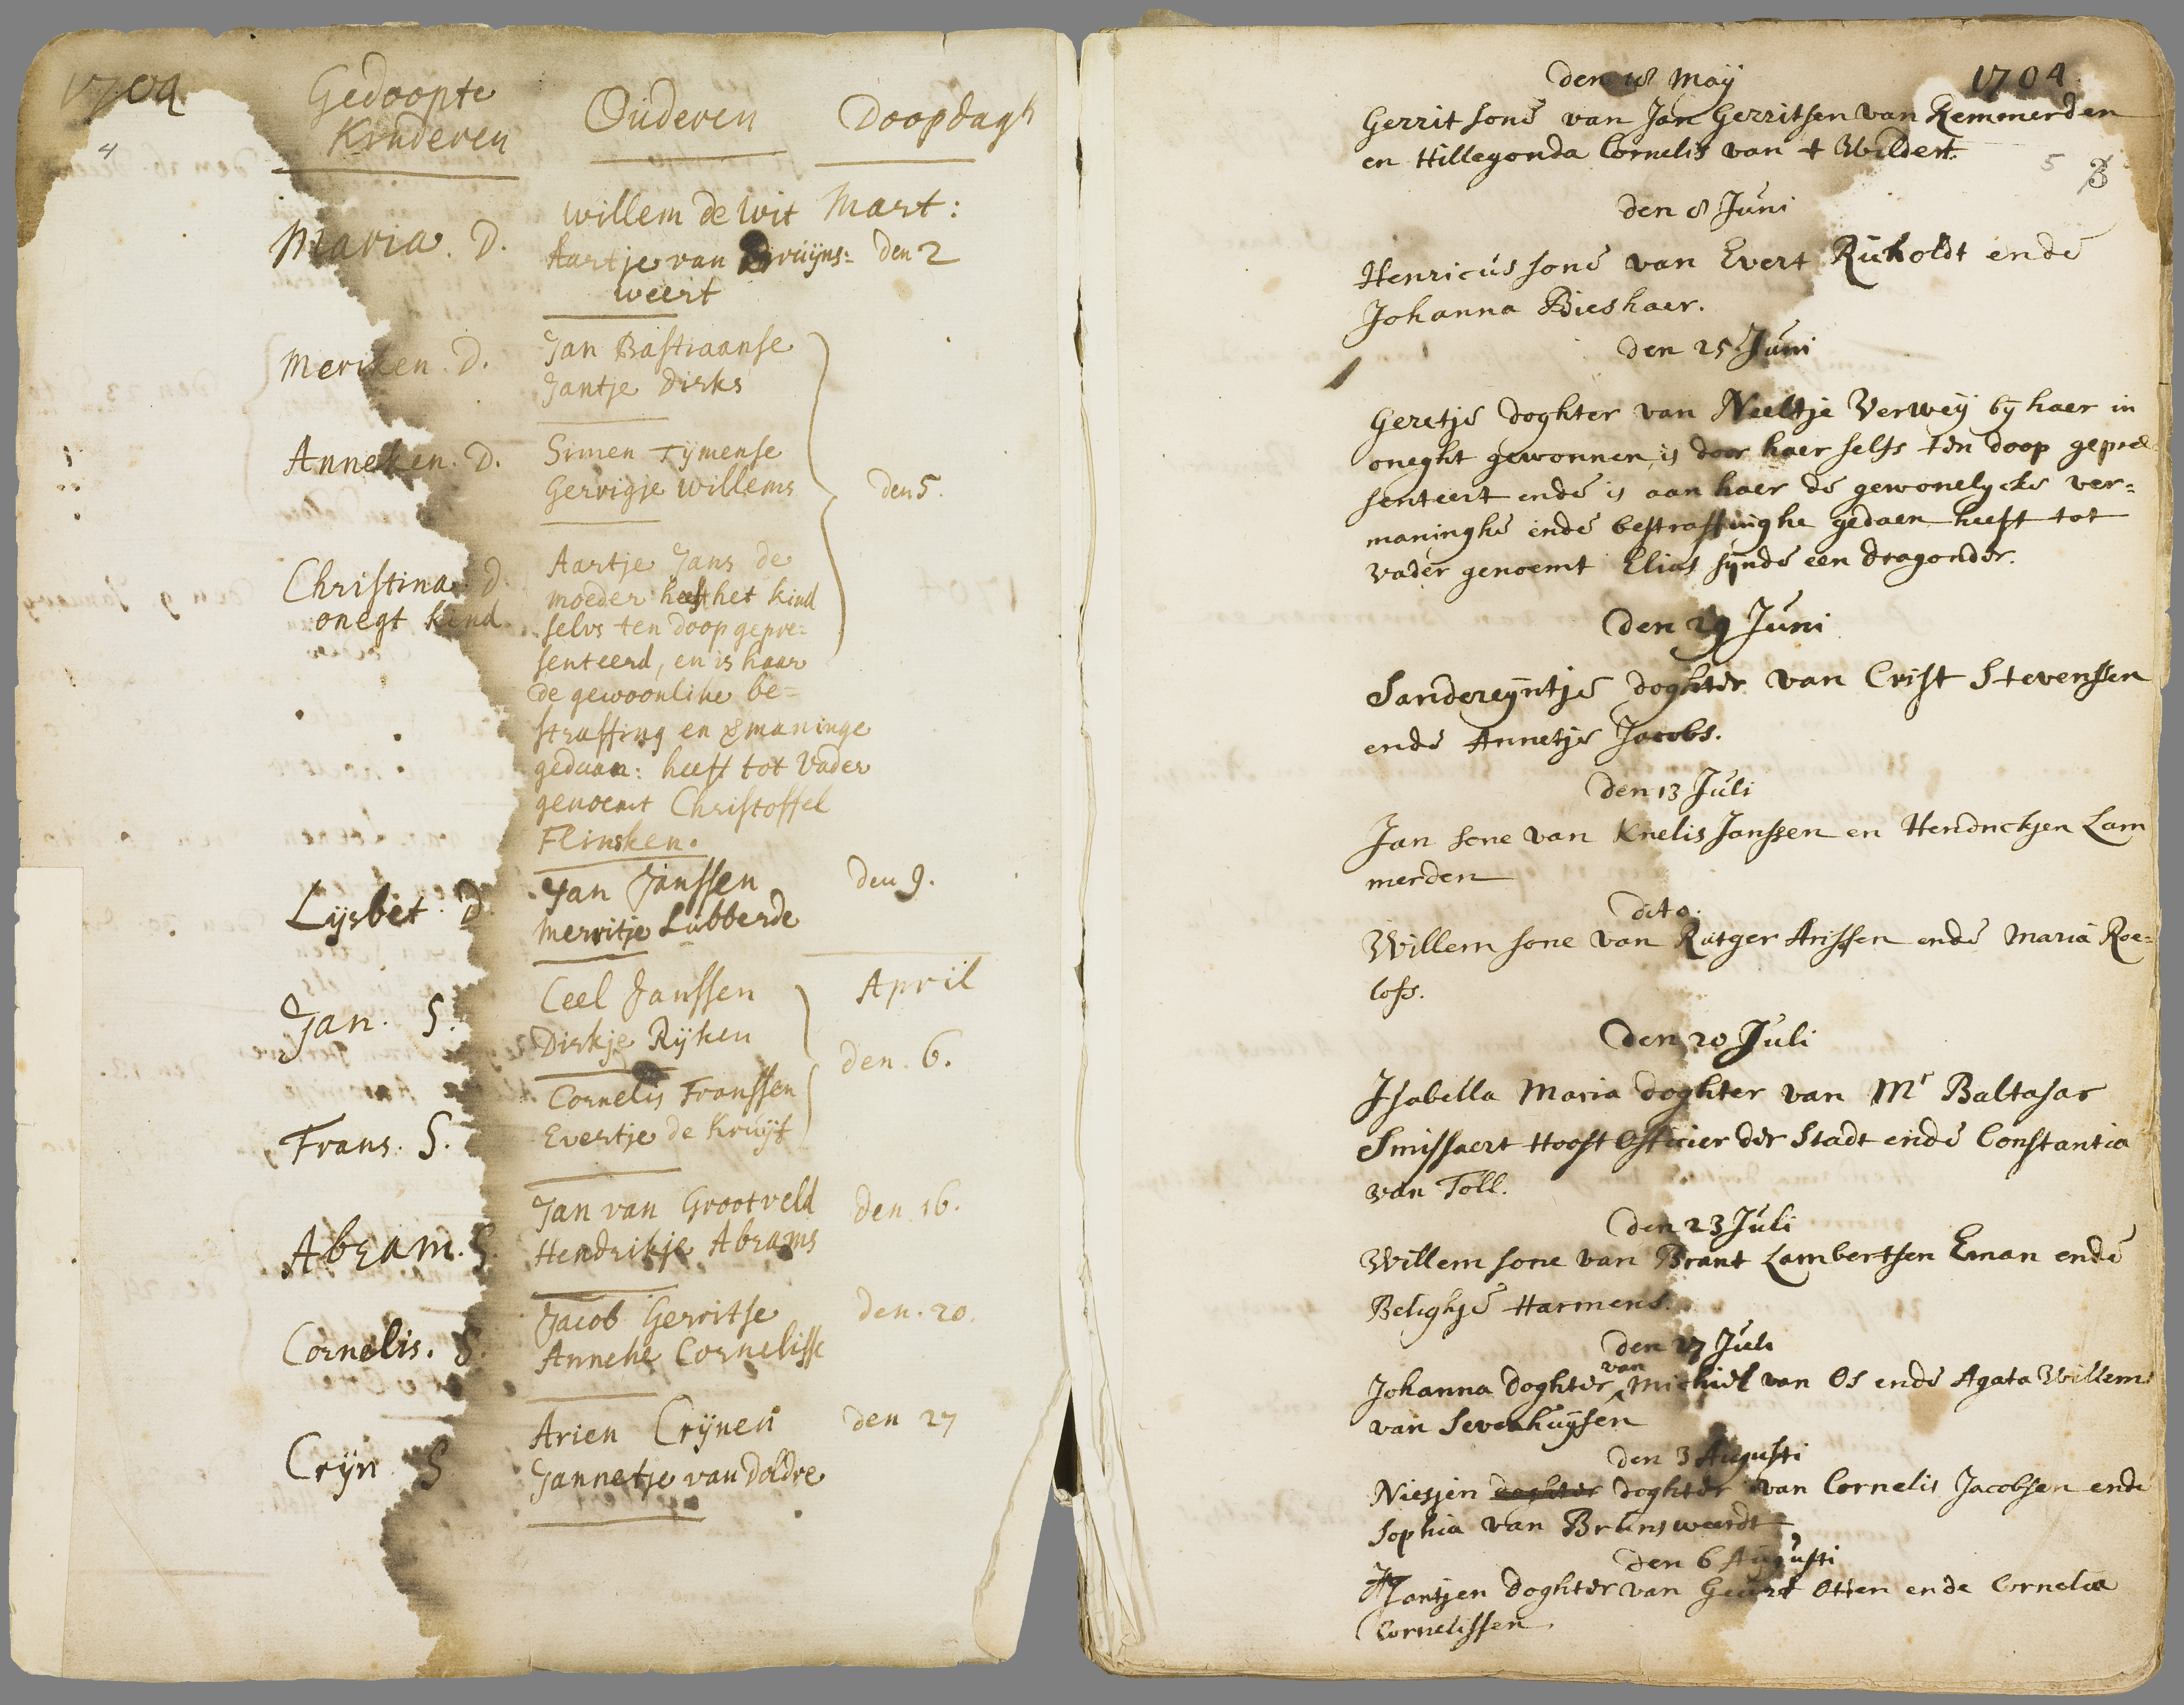 1704
4
Gedoopte Kinderen
Ouderen
Doopdagh
Maria. D.
Willem de Wit
Aartje van Bruijns=
weert
Mart:
den 2
Meriken. D.
Jan Bastiaanse
Jantje Dirks
Anneken. D.
Simen Tijmense
Gerrigje Willems
den 5.
Christina. D.
onegt kind
Aartje Jans de
moeder heeft het kind
selvs ten doop gepre=
senteerd, en is haar
de gewoonlike be=
straffing en vmaninge
gedaan: heeft tot Vader
genoemt Christoffel
Flinsken.
Lijsbet. D.
Jan Janssen
Merritje Lubberde
den 9.
April
Jan. S.
Ceel Janssen
Dirkje Rijken
den. 6.
Frans. S.
Cornelis Franssen
Evertje de Kruijf
Abram. S.
Jan van Grootveld
Hendrikje Abrams
den 16.
Cornelis. S.
Jacob Gerritse
Anneke Cornelisse
den. 20.
Crijn S
Arien Crijnen
Jannetje van Doldre
den 27
1704
5 3
den 18 Maij
Gerrit sone van Jan Gerritsen van Remmerden
en Hillegonda Cornelis van t Wildert.
den 8 Juni
Henricus sone van Evert Ruholdt ende
Johanna Bieshaer.
den 25 Juni
Geretje doghter van Neeltje Verweij bij haer in
oneght gewonnen, is door haer selfs ten doop geprae
senteert ende is aan haer de gewonelycke ver=
maninghe ende bestraffinghe gedaen heeft tot
vader genoemt Elias sijnde een dragonder.
Den 29 Juni
Sandereyntje doghter van Crist Stevenssen
ende Annetje Jacobs.
Den 13 Juli
Jan sone van Knelis Janssen en Hendrickjen Lam
merden
dito.
Willem sone van Rutger Arissen ende Maria Roe=
lofs.
Den 20 Juli
Isabella Maria doghter van Mr Baltasar
Smissaert Hooft Officier der Stadt ende Constantia
van Toll.
Den 23 Juli
Willem sone van Brant Lambertsen Eman ende
Belighje Harmens.
den 27 Juli
Johanna doghter van Michiel van Os ende Agata Willems
van Sevenhuysen
den 3 Augusti
Niesjen doghter doghter van Cornelis Jacobsen ende
Sophia van Brunsweerdt
den 6 Augusti
Jantjen doghter van Geurt Otten ende Cornelia
Cornelissen.